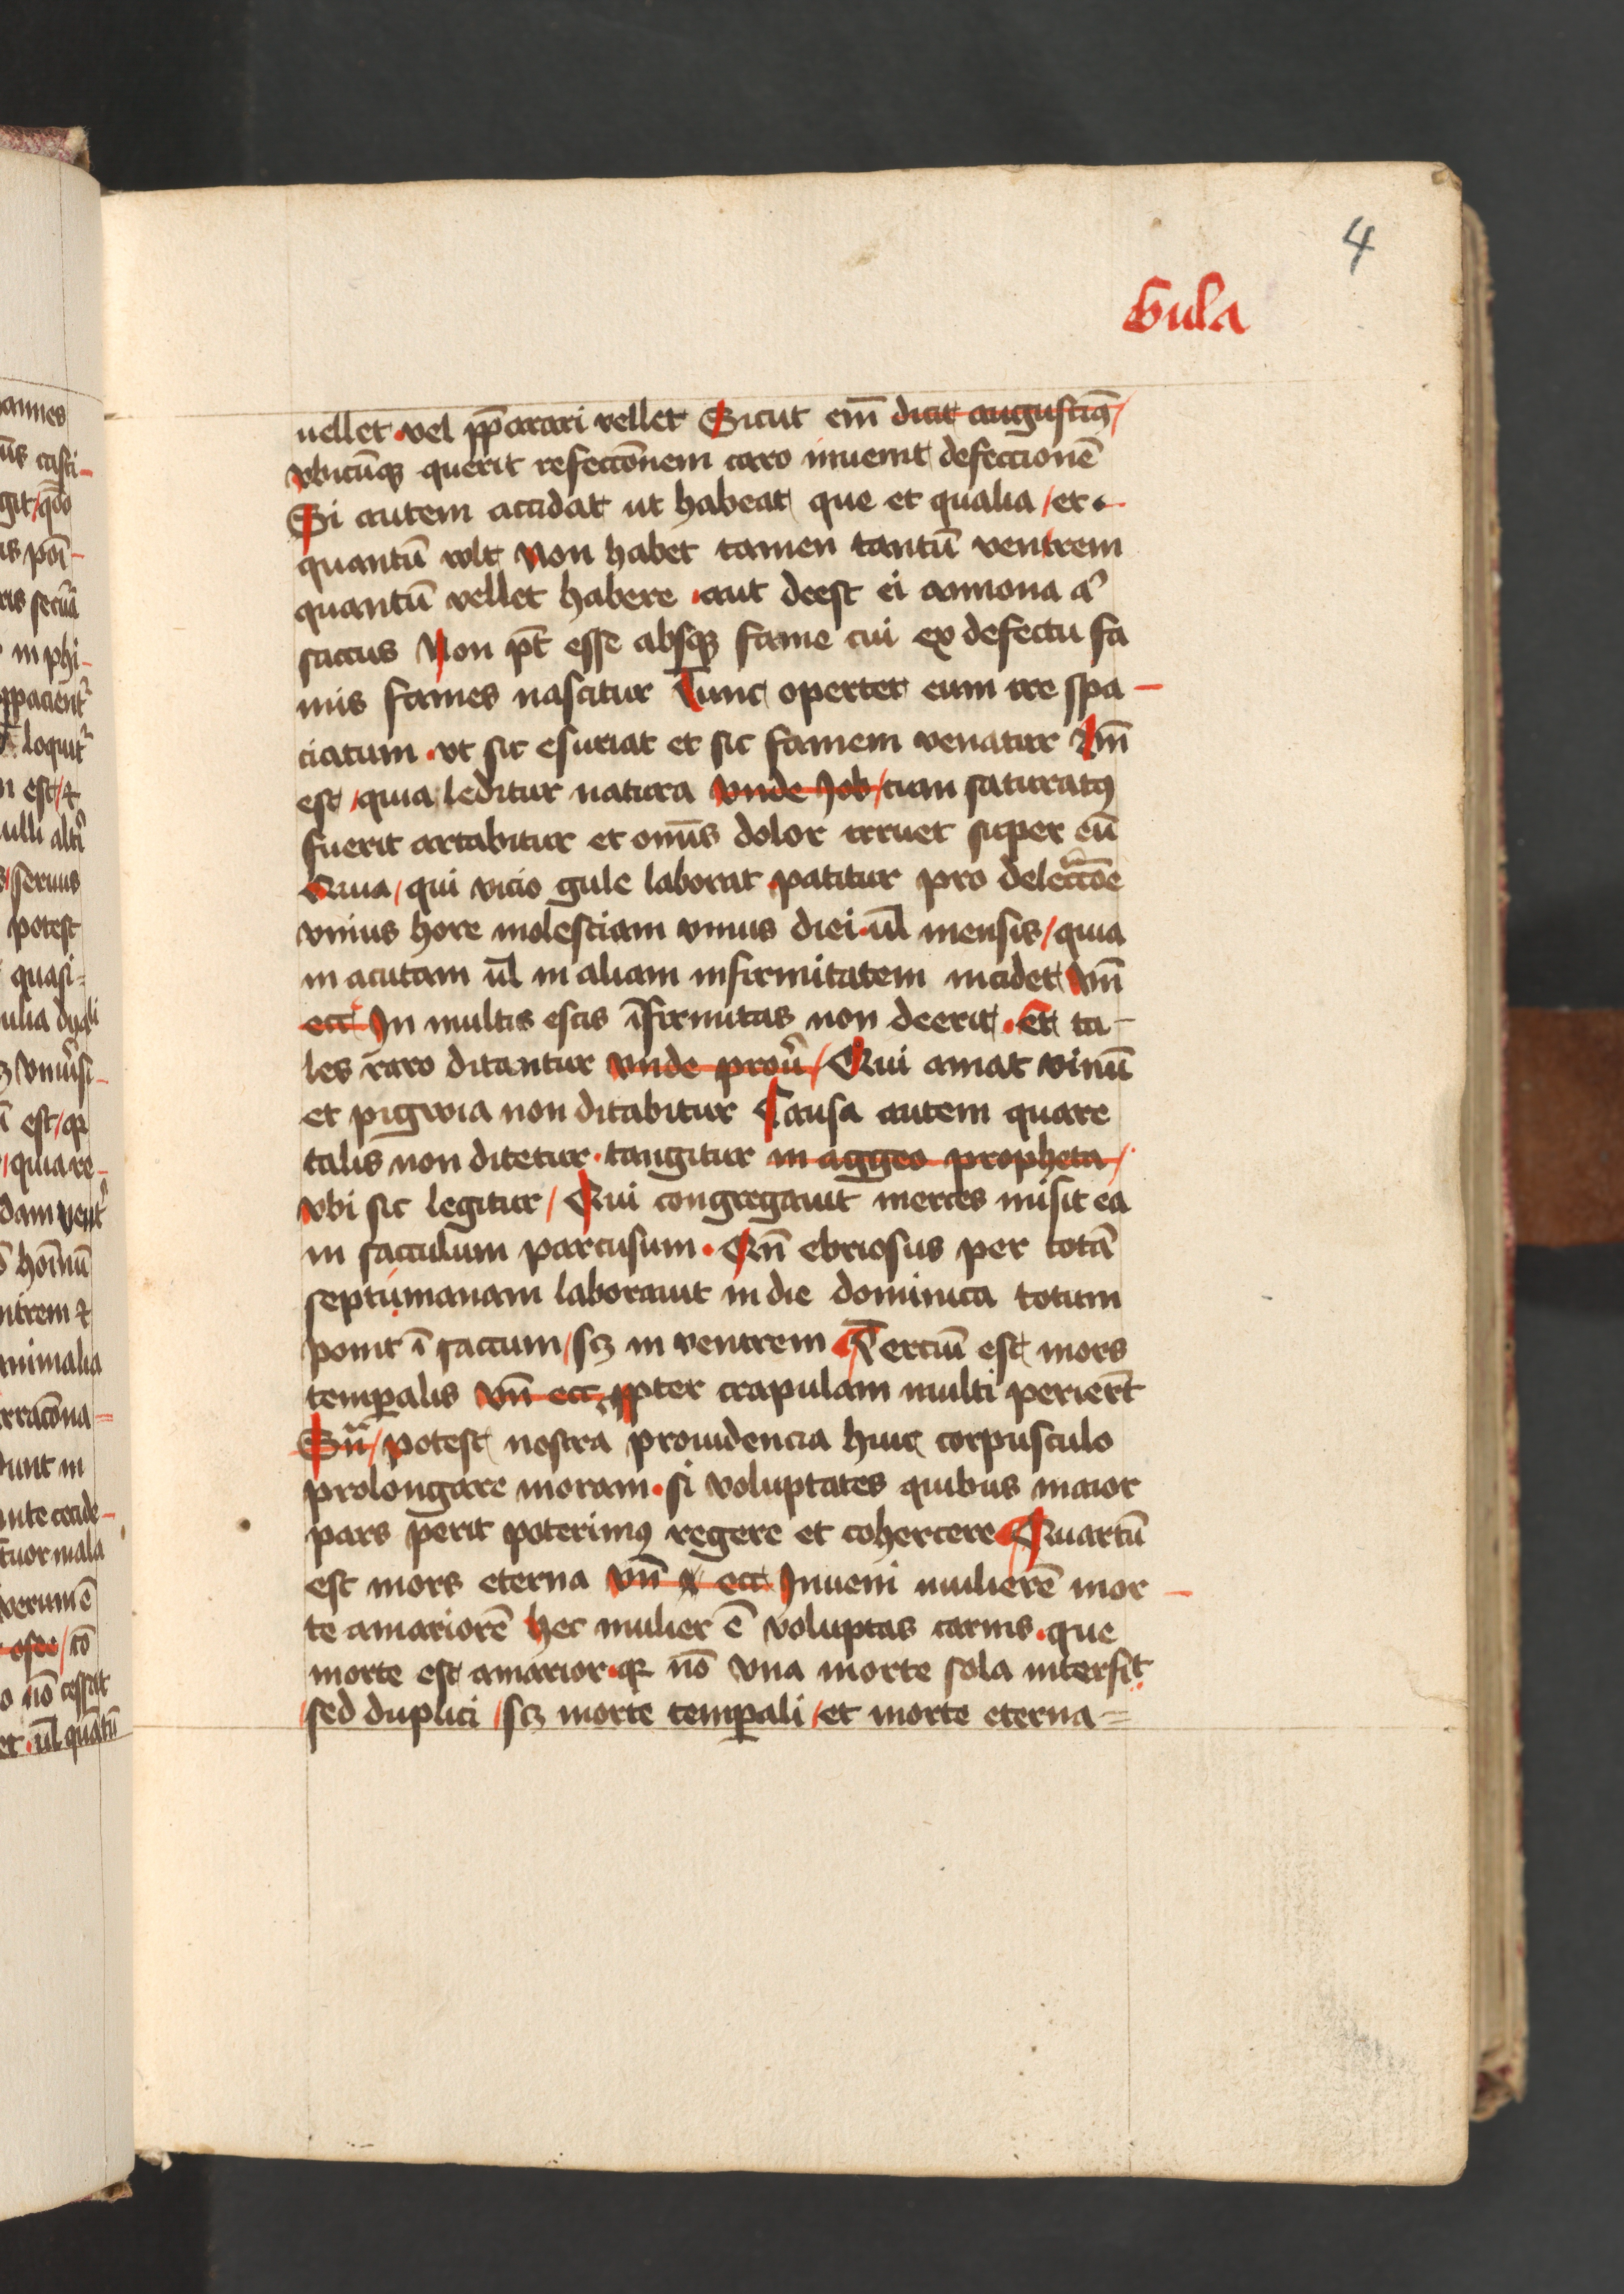 4
Gula
uellet vel pp̄arari vellet Sicut em̄ dicit augustinꝰ
vbicūqꝫ querit refecc̄onem caro inuenit defeccionē
Si autem accidat ut habeat que et qualia et
quantū volt Non habet tamen tantū ventrem
quantū vellet habere aut deest ei annona aut
saccus Non pt̄ esse absqꝫ fame cui ex defectu fa
mis fames nascitur Tunc opertet eum ire spa-
ciatum vt sic esuriat et sic famem venatur
est quia leditur natura vnde Job cum saturatꝰ
fuerit artabitur et omīs dolor irruet super eū
Quia qui vicio gule laborat patitur pro delectac̄oe
vnius hore molestiam vnius diei ul̄ mensis quia
in acutam ul̄ in aliam infirmitatem incidet vn̄
ecc̄ In multis escis īfirmitas non deerit Et ta-
les raro ditantur vnde prou̾ Qui amat vinū
et pigwia non ditabitur Causa autem quare
talis non ditetur tangitur in aggeo propheta
vbi sic legitur Qui congregauit merces misit ea
in sacculum partusum Qn̄ ebriosus per totā
septimanam laborauit in die dominica totum
ponit ī saccum scꝫ in ventrem Terciū est mors
temꝑalis vn̄ ecc̄ ꝓpter crapulam multi perierūt
Sn̄a potest nostra prouidencia huic corpusculo
prolongare moram si voluptates quibus maior
pars perit poterimꝰ regere et cohercere Quartū
est mors eterna vn̄ ecc̄ Inueni mulierē mor-
te amariorē hec mulier ē voluptas carnis que
morte est amarior qꝛ nō vna morte sola interfit
sed duplici scꝫ morte temꝑali et morte eterna